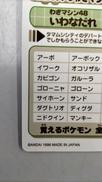 わざマシン48
いわなだれ
タマムシシティのデパート
でしかもらうことができな
アーボ アーボック
イワーク オコリザル
カビゴン ガルーラ
ゴローニャ ゴローン
サイホーン サンド
ダグトリオ ディグダ
ニドクイン マンキー
覚えるポケモン 全
BANDAI 1998 MADE IN JAPAN